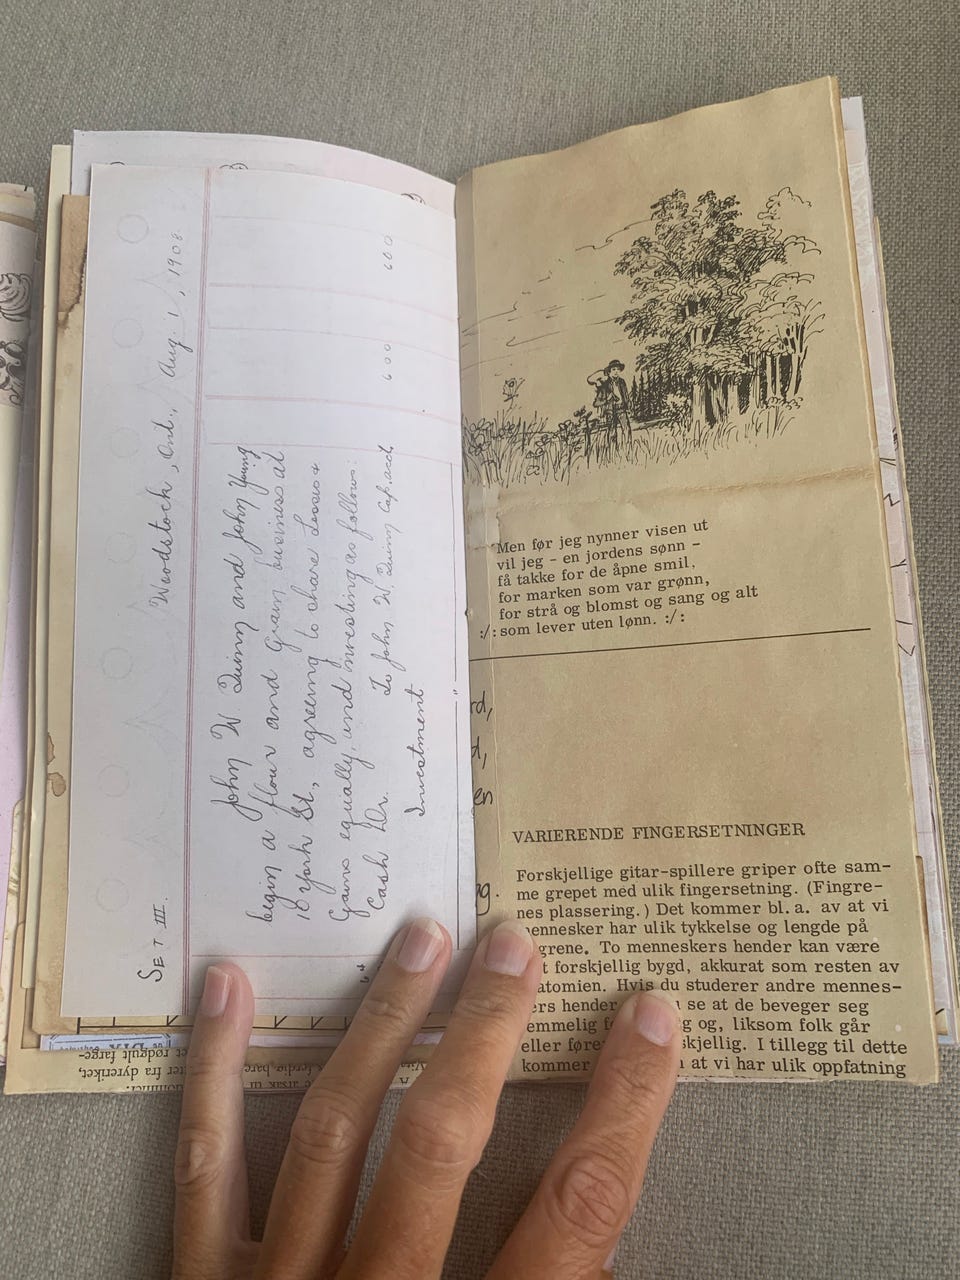 SET III.
Woodstock, Ont., Aug. 1, 1908.
John W. Quinn and John Young
begin a flour and grain business at
18 York St., agreeing to share Losses &
Gains equally, and investing as follows:
Cash Dr. To John W. Quinn Cap. acct 600 600
Investment
"
rd,
d,
en
ng.
Men før jeg nynner visen ut
vil jeg - en jordens sønn -
få takke for de åpne smil,
for marken som var grønn,
for strå og blomst og sang og alt
:/: som lever uten lønn. :/:
VARIERENDE FINGERSETNINGER
Forskjellige gitar-spillere griper ofte sam-
me grepet med ulik fingersetning. (Fingre-
nes plassering.) Det kommer bl. a. av at vi
mennesker har ulik tykkelse og lengde på
grene. To menneskers hender kan være
t forskjellig bygd, akkurat som resten av
atomien. Hvis du studerer andre mennes-
ers hender se at de beveger seg
emmelig g og, liksom folk går
eller føre skjellig. I tillegg til dette
kommer at vi har ulik oppfatning
et rødgult farge-
ter fra dyreriket,